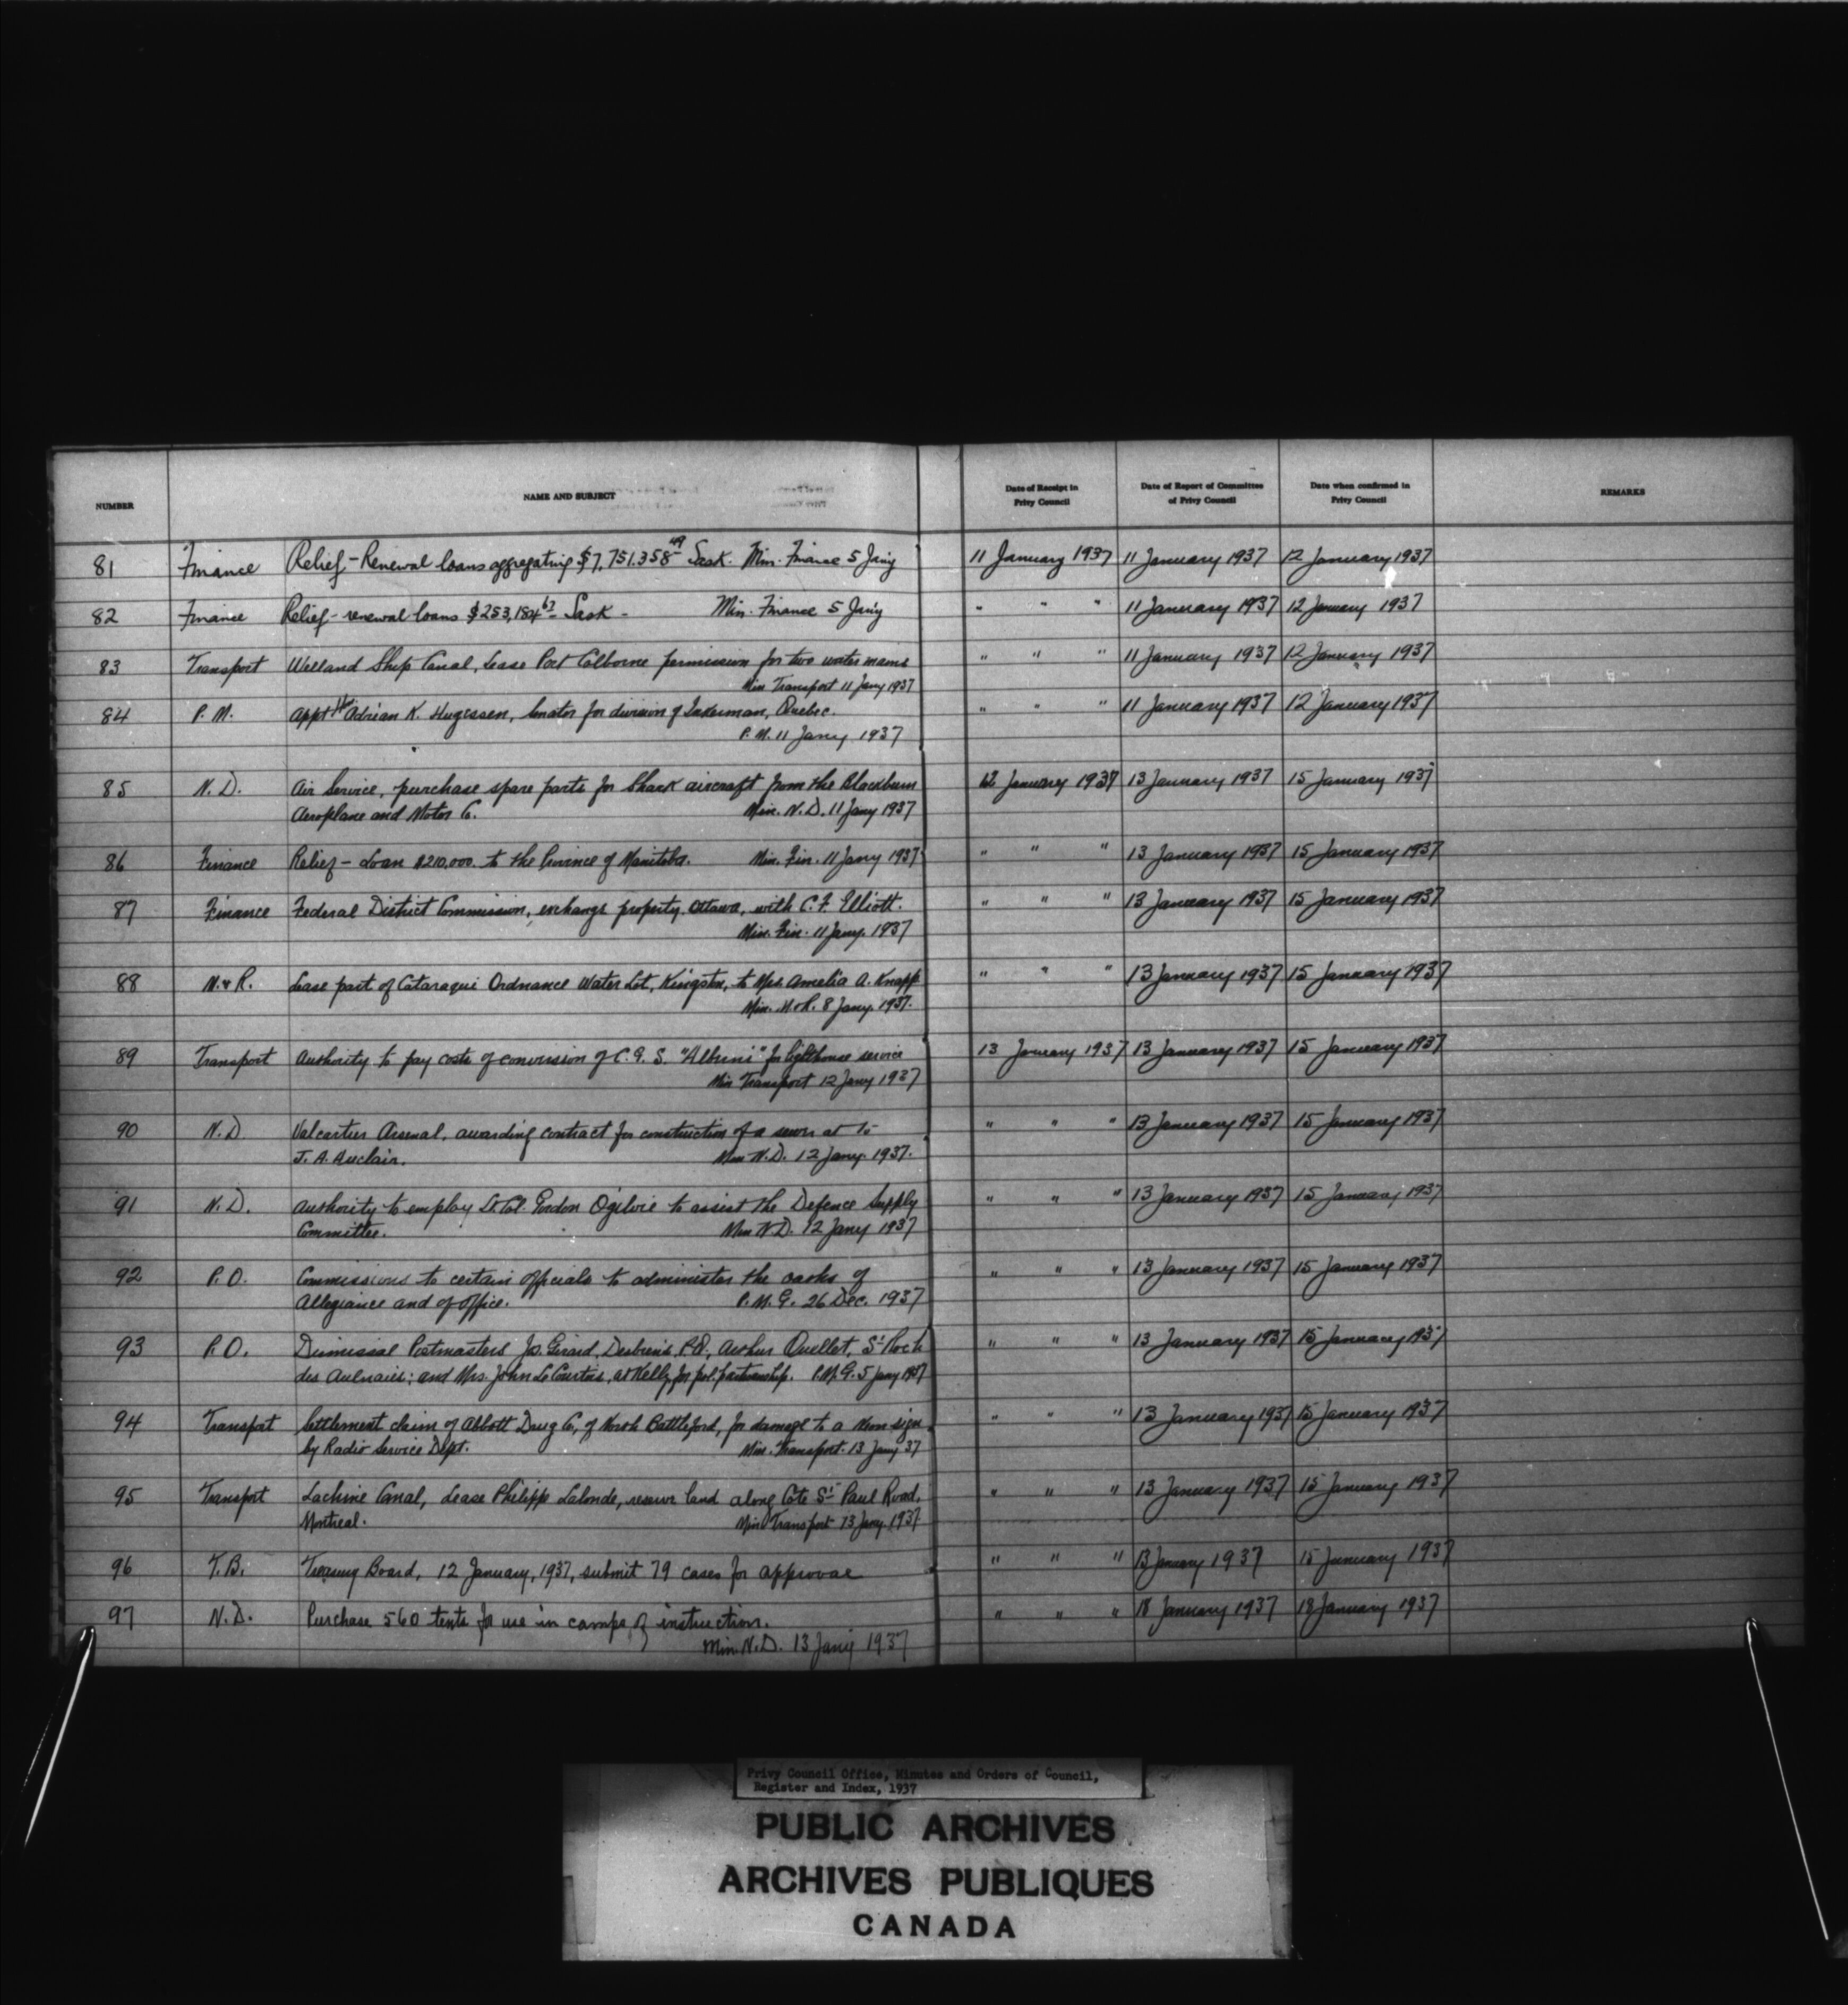 NUMBER NAME AND SUBJECT Date of Receipt in Privy Council Date of Report of Committee of Privy Council Date when confirmed in Privy Council REMARKS
81 Finance Relief - Renewal loans aggregating $7,751.358 49 Sask. Min. Finance 5 Jany 11 January 1937 11 January 1937 12 January 1937
82 Finance Relief - renewal loans $253,184 67 Sask - Min. Finance 5 Jany " " " 11 January 1937 12 January 1937
83 Transport Welland Ship Canal, Lease Port Colborne permission for two water mains " " " 11 January 1937 12 January 1937
Min Transport 11 Jany 1937
84 P.M. Appt Adrian K. Hugessen, Senator for division of Inkerman, Quebec. " " " 11 January 1937 12 January 1937
P.M. 11 Jany 1937
85 N.D. Air Service, purchase spare parts for Shark aircraft from the Blackburn 12 January 1937 13 January 1937 15 January 1937
Aeroplane and Motor Co. Min. N.D. 11 Jany 1937
86 Finance Relief - Loan $210,000. to the Province of Manitoba. Min. Fin. 11 Jany 1937 " " " 13 January 1937 15 January 1937
87 Finance Federal District Commission, exchange property, Ottawa, with C.F. Elliott. " " " 13 January 1937 15 January 1937
Min. Fin. 11 Jany. 1937
88 M.&R. Lease part of Cataraqui Ordnance Water Lot, Kingston, to Mrs. Amelia A. Knapp " " " 13 January 1937 15 January 1937
Min. M.&R. 8 Jany. 1937.
89 Transport Authority to pay costs of conversion of C.G.S. "Alberni" for lighthouse service 13 January 1937 13 January 1937 15 January 1937
Min Transport 12 Jany 1937
90 N.D. Valcartier Arsenal, awarding contract for construction of a sewer at to " " " 13 January 1937 15 January 1937
J.A. Auclair. Min N.D. 12 Jany. 1937.
91 N.D. Authority to employ Lt. Col. Gordon Ogilvie to assist the Defence Supply " " " 13 January 1937 15 January 1937
Committee. Min N.D. 12 Jany 1937
92 P.O. Commissions to certain officials to administer the oaths of " " " 13 January 1937 15 January 1937
Allegiance and of office. P.M.G. 26 Dec. 1937
93 P.O. Dismissal Postmasters Jos. Girard, Desbiens, P.Q., Arthur Ouellet, St Roch " " " 13 January 1937 15 January 1937
des Aulnaies; and Mrs. John LeCourtois, at Kelly, for pol. partisanship. P.M.G. 5 Jany 1937
94 Transport Settlement claim of Abbott Drug Co, of North Battleford, for damage to a Neon sign " " " 13 January 1937 15 January 1937
by Radio Service Dept. Min. Transport. 13 Jany 37
95 Transport Lachine Canal, Lease Philippe Lalonde, reserve land along Cote St Paul Road, " " " 13 January 1937 15 January 1937
Montreal. Min Transport 13 Jany. 1937
96 T.B. Treasury Board, 12 January, 1937, submit 79 cases for approval " " " 13 January 1937 15 January 1937
97 N.D. Purchase 560 tents for use in camps of instruction. " " " 18 January 1937 18 January 1937
Min. N.D. 13 Jany 1937
Privy Council Office, Minutes and Orders of Council,
Register and Index, 1937
PUBLIC ARCHIVES
ARCHIVES PUBLIQUES
CANADA